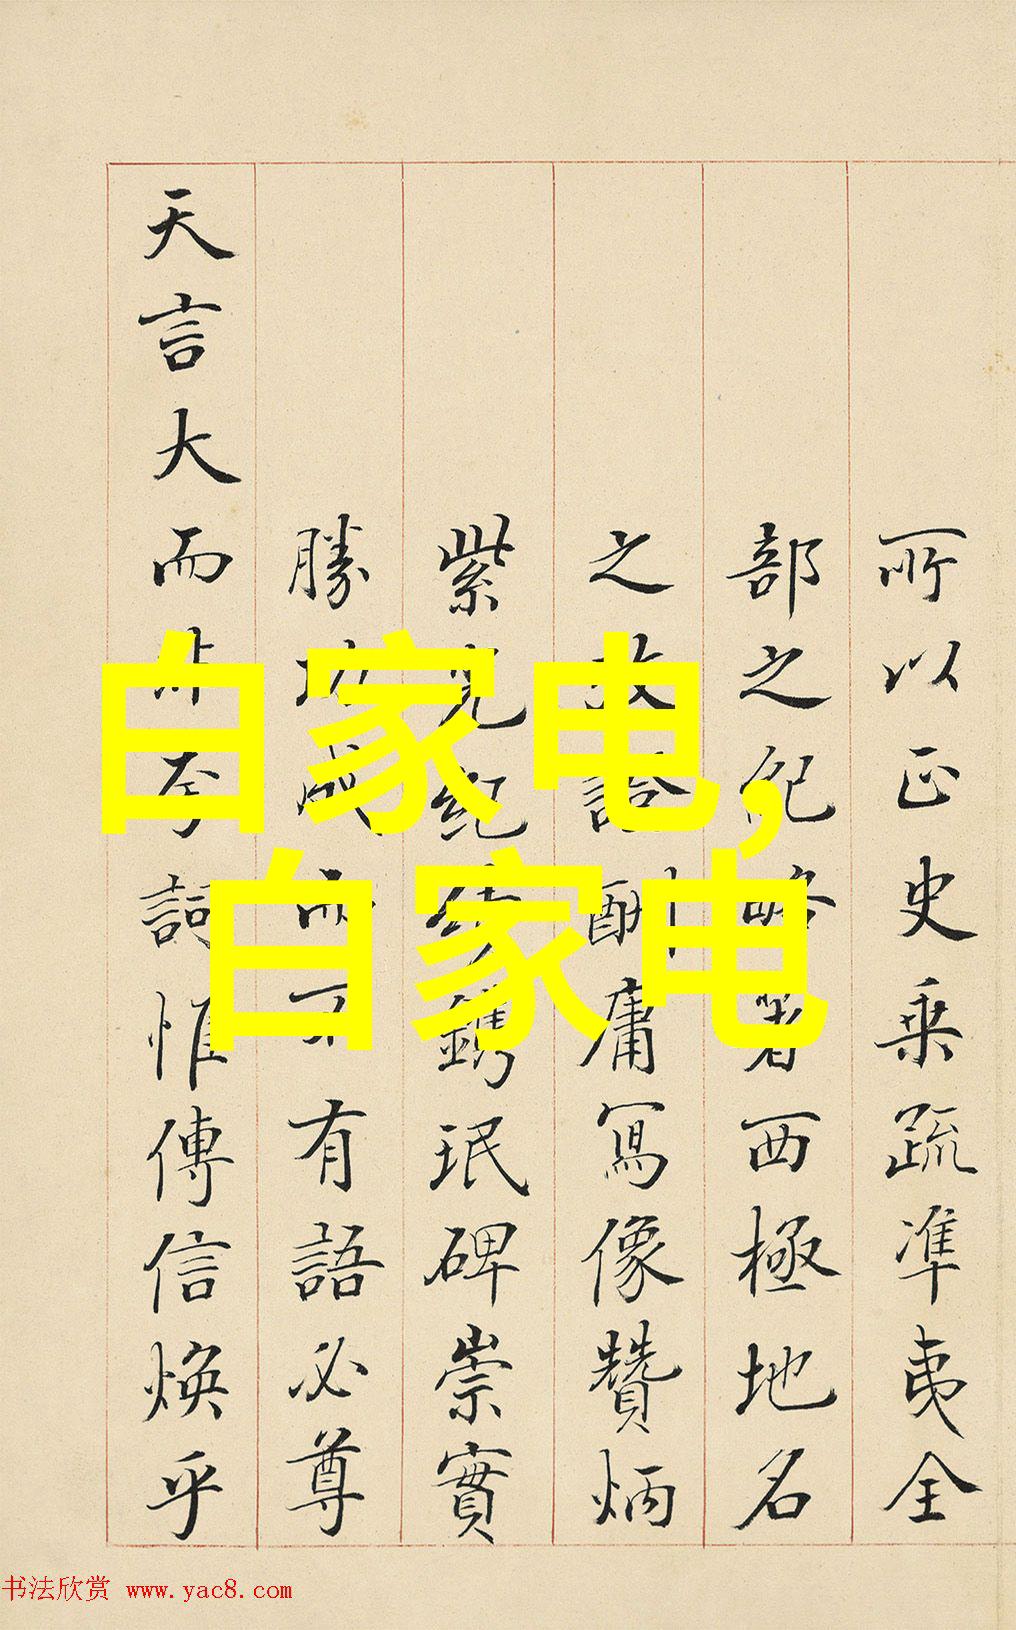 所以正史乘疏準夷全
部之紀略著西極地名
之酬庸寫像贊炳
紫光紀績鐫珉碑崇實
勝功成而不有語必尊
天言大而非夸詞惟傳信煥乎
白家电,
白家电
书法欣赏 www.yac8.com